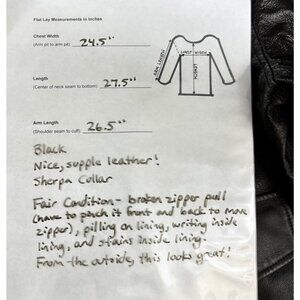 Flat Lay Measurements in Inches
Chest Width 24.5"
(Arm pit to arm pit)
Length 27.5"
(Center of neck seam to bottom)
Arm Length 26.5"
(Shoulder seam to cuff)
ARM LENGTH
CHEST WIDTH
LENGTH
Black
Nice, supple leather!
Sherpa Collar
Fair Condition - broken zipper pull
(have to pinch it front and back to move
zipper), pilling on lining, writing inside
lining, and stains inside lining.
From the outside, this looks great!